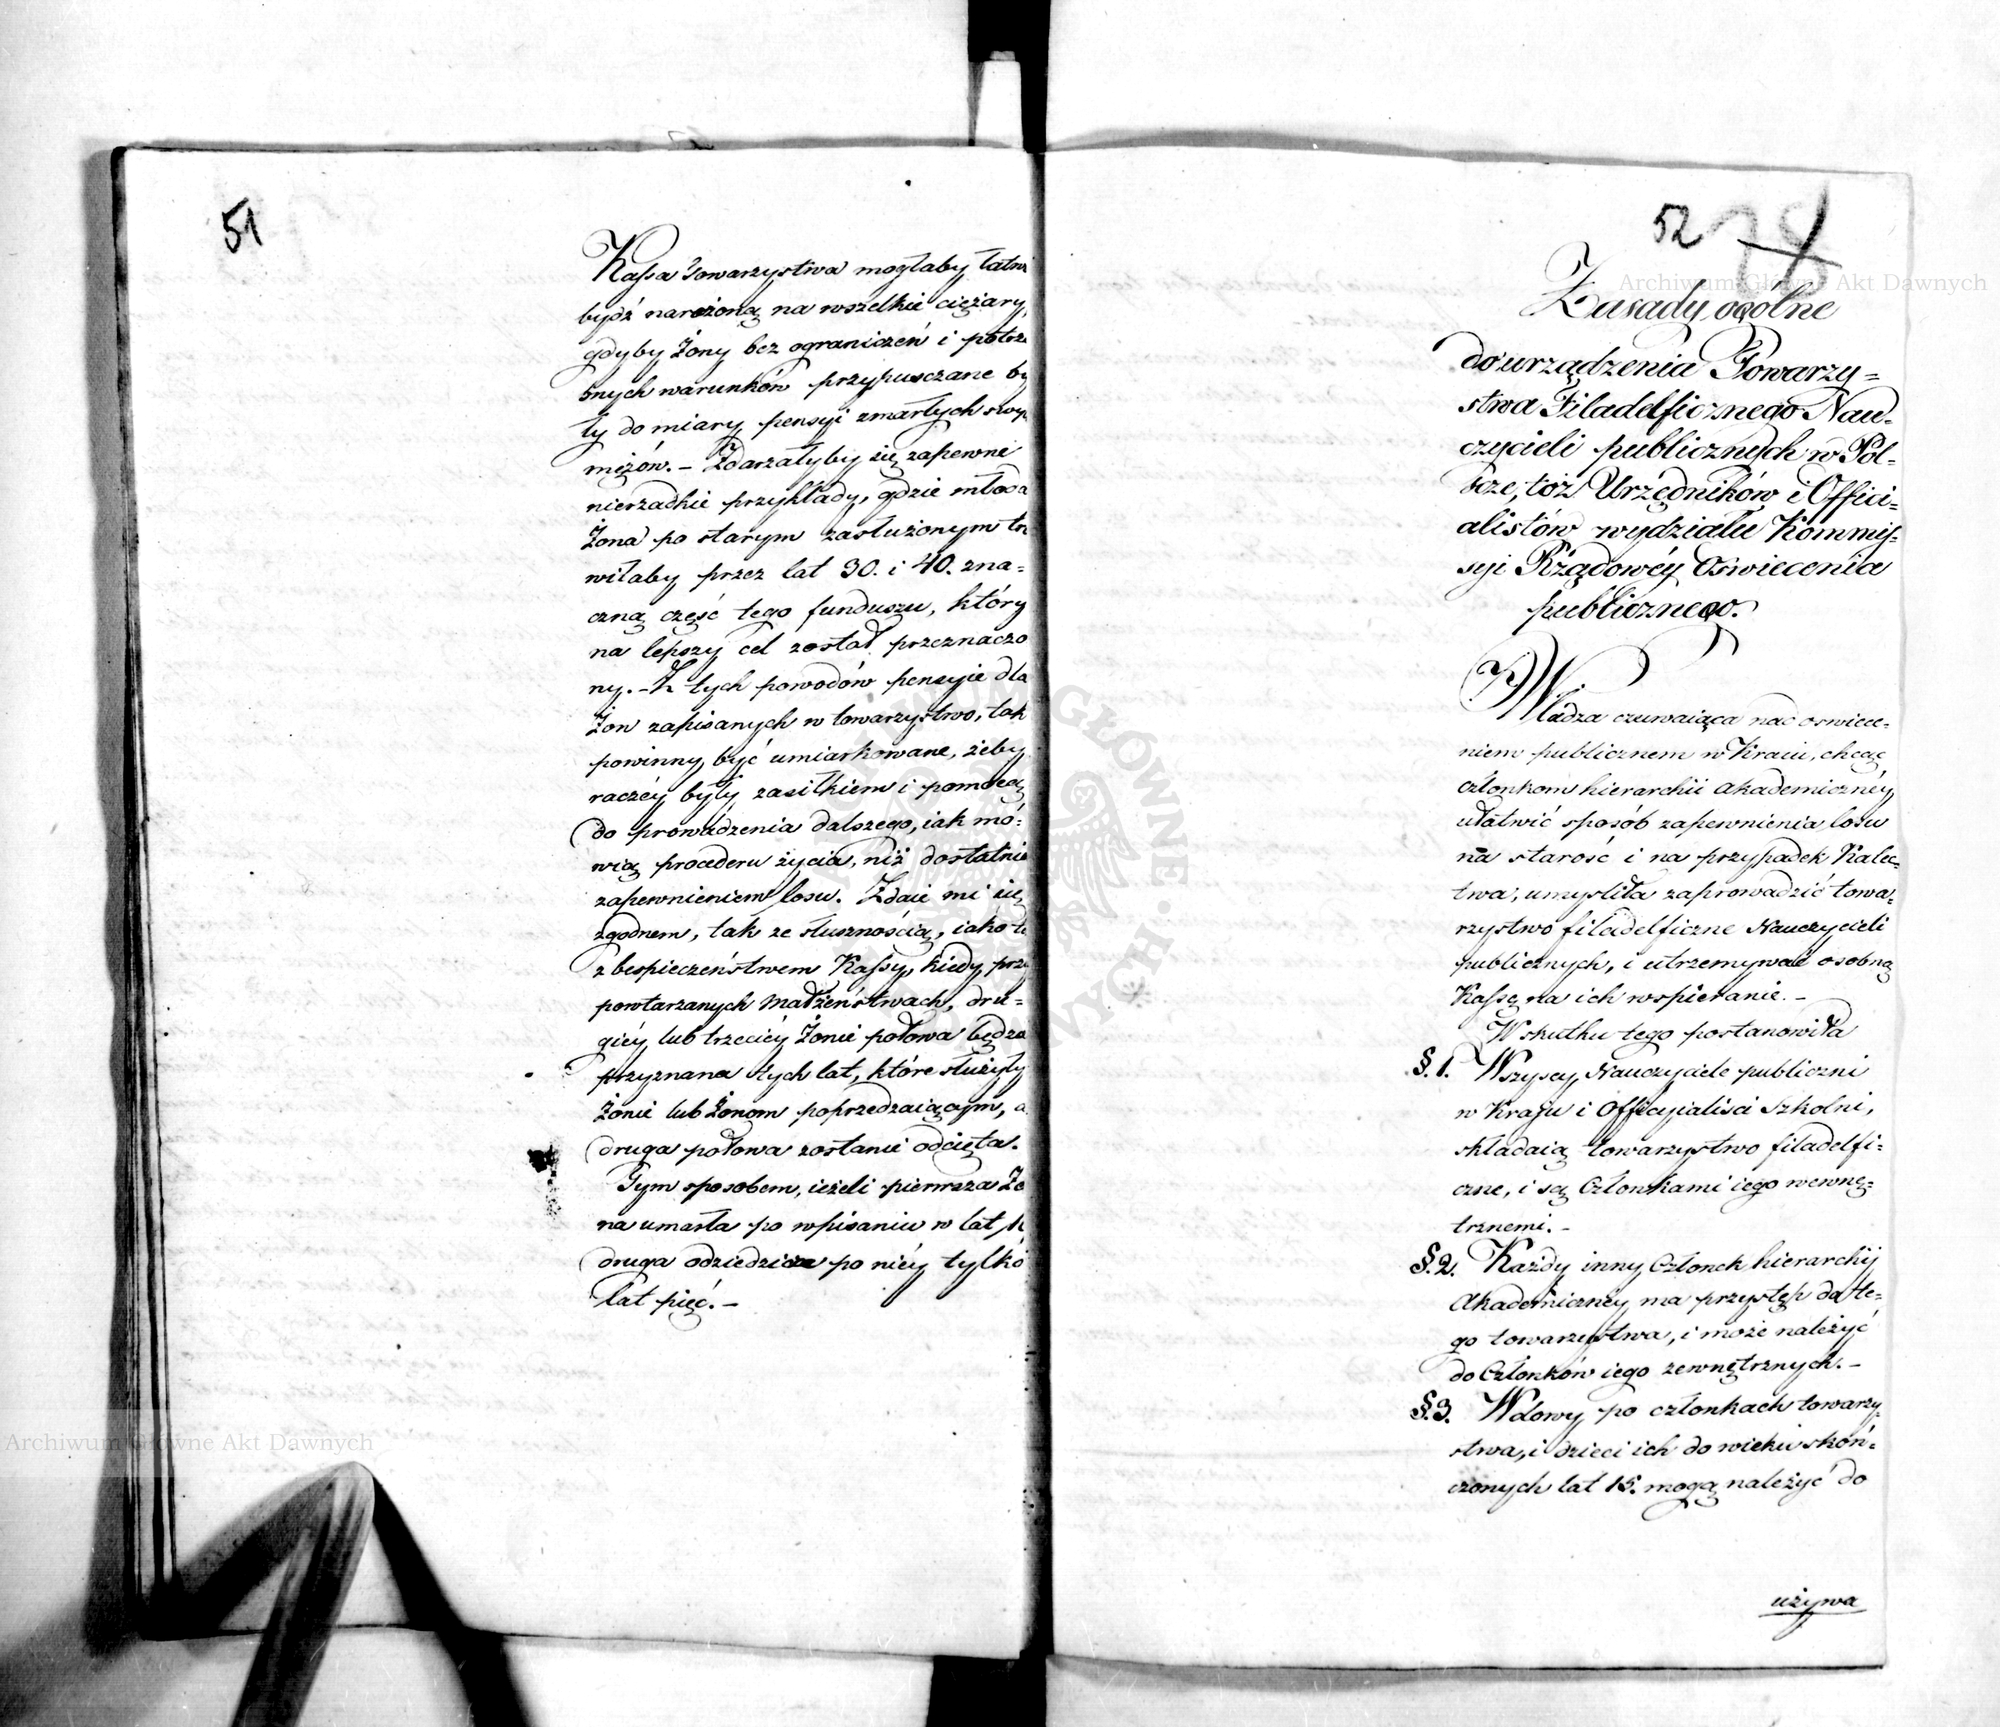 51
Kassa Towarzystwa mogłaby łatwi
bydź narożoną na wszelkie ciężary,
gdyby Żony bez ograniczeń i potrze
bnych warunków przypusczane by
ły do miary pensyi zmarłych swy
mężów. – Zdarzałyby się zapewne
nierzadkie przykłady, gdzie młoda
Żona po starym zasłużonym tr
wiłaby przez lat 30. i 40. zna=
czną część tego funduszu, który
na lepszy cel został przeznaczo
ny. – Z tych powodów pensyie dla
Żon zapisanych w towarzystwo, tak
powinny być umiarkowane, żeby
raczéy były zasiłkiem i pomocą
do prowadzenia dalszego, iak mó=
wią procederu życia, niż dostatnie
zapewnieniem losu. Zdaie mi się
zgodnem, tak ze słusznością, iako t
z bespieczeństwem Kassy, kiedy prz
powtarzanych małżeństwach, dru=
giéy lub trzeciéy Żonie połowa będz
przyznana tych lat, które służyły
Żonie lub Żonom poprzedzaiącym, a
druga połowa zostanie odcięta.
Tym sposobem, ieżeli pierwsza Żo
na umarła po wpisaniu w lat 1
druga odziedzicze po niéy tylko
lat pięć. –
52
Zasady ogolne
do urządzenia Towarzy=
stwa Filadelficznego Nau=
czycieli publicznych w Pol=
scze, toż Urzędników i Offici=
alistów wydziału Kommis=
syi Rządowéy Oswiecenia
publicznego.
Władza czuwaiąca nad oswiece=
niem publicznem w Kraiu, chcąc
członkom hierarchii akademicznéy
ułatwić sposób zapewnienia losu
na starość i na przypadek Kalec=
twa, umysliła zaprowadzić towa=
rzystwo filadelficzne Nauczycieli
publicznych, i utrzemywać osobną
Kassę na ich wspieranie. –
W skutku tego postanowiła
§. 1. Wszyscy Nauczyciele publiczni
w Kraju i Officyialisci Szkolni,
składaią towarzystwo filadelfi=
czne, i są Członkami iego wewnę=
trznemi. –
§. 2. Każdy inny Członek hierarchij
Akademicznéy ma przystęp do te=
go towarzystwa, i może należyć
do Członków iego zewnętrznych. –
§. 3. Wdowy po członkach towarzy=
stwa, i dzieci ich do wieku skoń=
czonych lat 15. mogą należyć do
używa
Archiwum Główne Akt Dawnych
Archiwum Główne Akt Dawnych